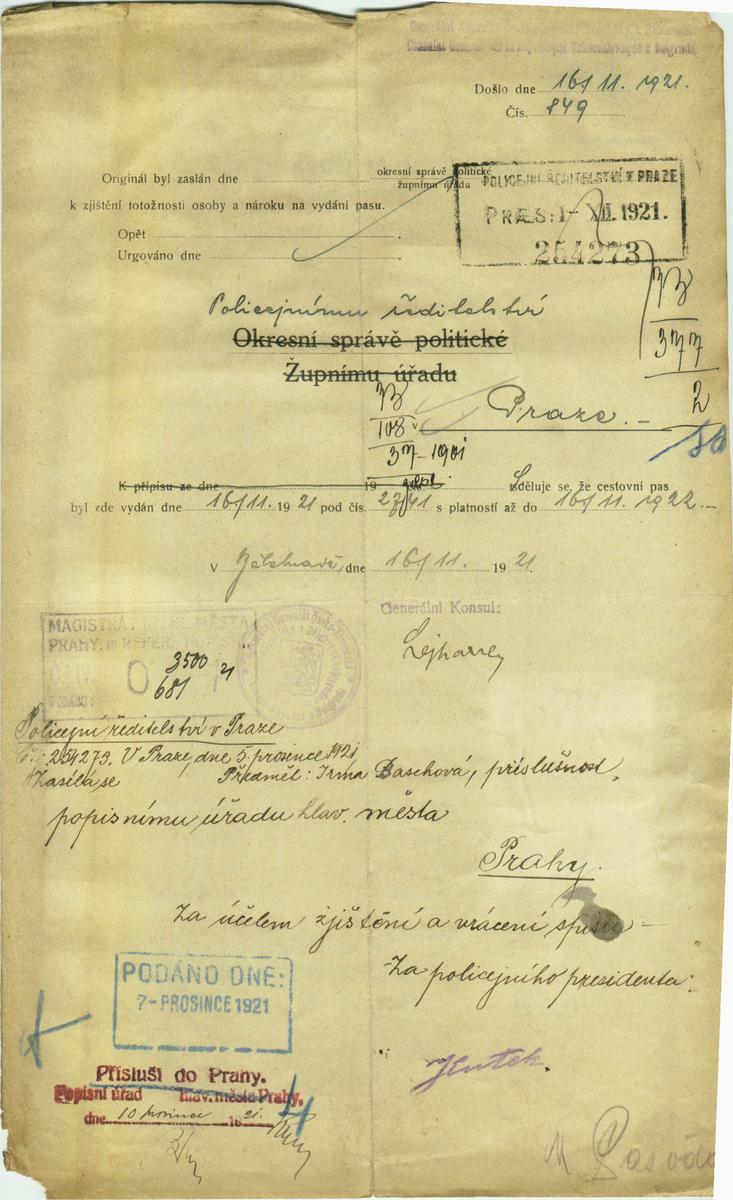 Došlo dne 16/11. 1921.
Čís. 849
Originál byl zaslán dne okresní správě politické
župnímu úřadu
k zjištění totožnosti osoby a nároku na vydání pasu.
Opět
Urgováno dne
POLICEJNÍ ŘEDITELSTVÍ V PRAZE
PRÆS: 1- XII. 1921.
254273
Policejnímu ředitelství
Okresní správě politické
Župnímu úřadu
377
2
108
v Praze.
37-1901
K přípisu ze dne 19 Sděluje se, že cestovní pas
byl zde vydán dne 16/11. 1921 pod čís. 2741 s platností až do 16/11. 1922.-
V Bělehradě, dne 16/11. 1921.
Generální Konsul:
MAGISTRÁT HLAV. MĚSTA
PRAHY
PODÁNO:
3500
681 21
Policejní ředitelství v Praze
Č.: 254273. V Praze, dne 5. prosince 1921
Zasílá se Předmět: Irma Baschová, příslušnost.
popisnímu úřadu hlav. města
Prahy.
Za účelem zjištění a vrácení spisu
Za policejního presidenta:
PODÁNO DNE:
7- PROSINCE 1921
Přísluší do Prahy.
Popisní úřad hlav. města Prahy,
dne 10 prosince 1921.